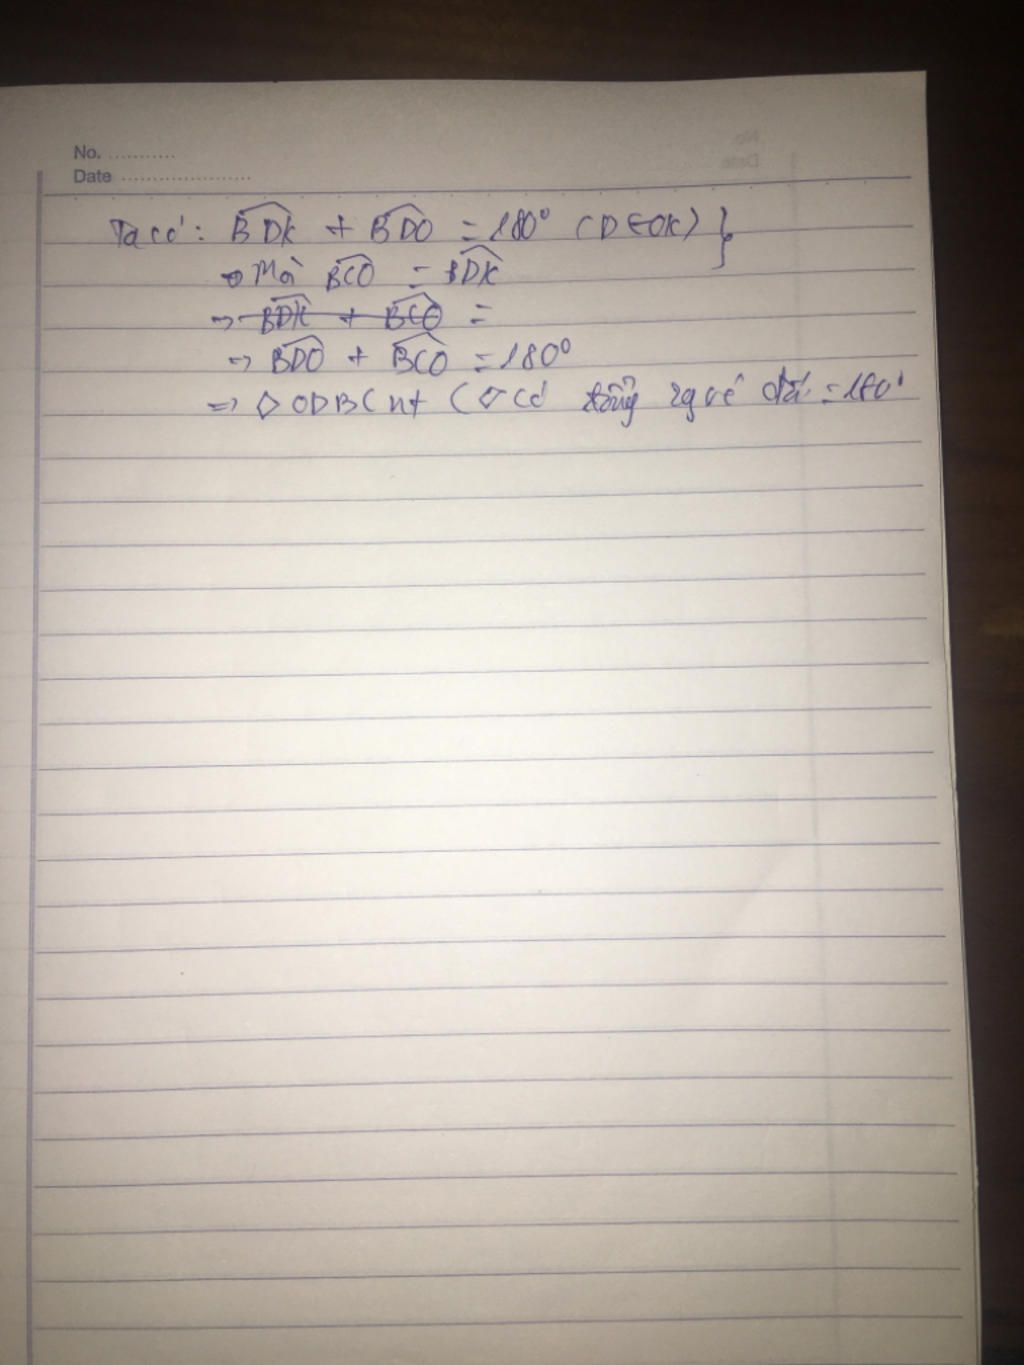 No. ...........
Date ......................
Ta có: BDK + BDO = 180° (D ∈ OK) }
Mà BCO = BDK
=> BDK + BCO =
=> BDO + BCO = 180°
=> ODBC nt ( có tổng 2 góc đối = 180°